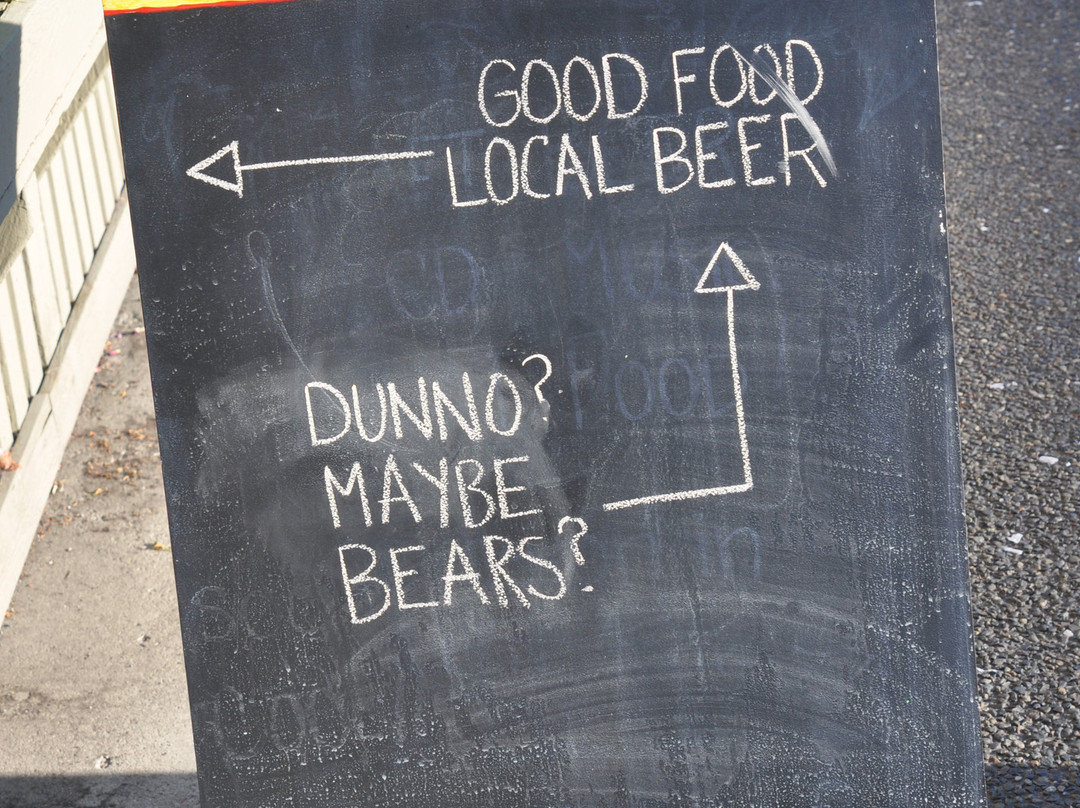 GOOD FOOD
LOCAL BEER
DUNNO?
MAYBE
BEARS?